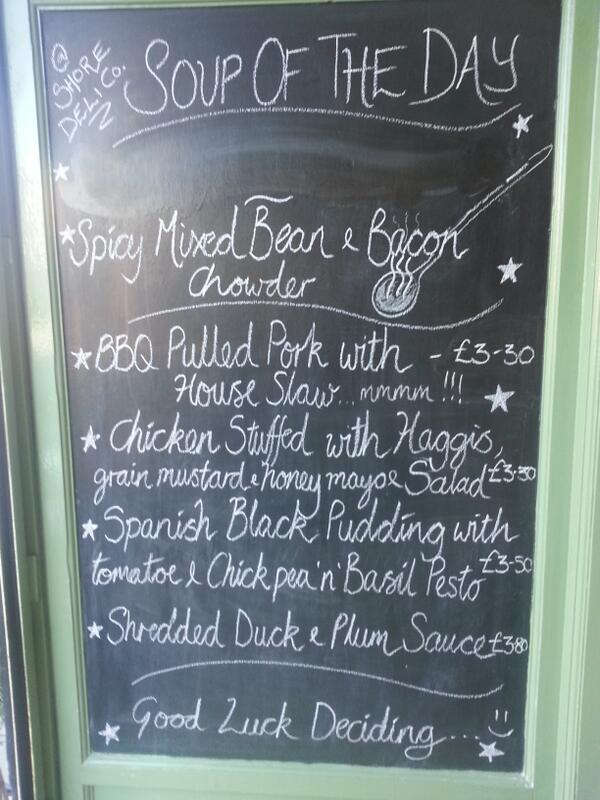 @
SHORE
DELI CO.
SOUP OF THE DAY
Spicy Mixed Bean & Bacon
Chowder
BBQ Pulled Pork with - £3-30
House Slaw...mmmm !!!
Chicken Stuffed with Haggis,
grain mustard & honey mayo & Salad £3-30
Spanish Black Pudding with
tomatoe & Chickpea 'n' Basil Pesto £3-50
Shredded Duck & Plum Sauce £3 80
Good Luck Deciding.... :)